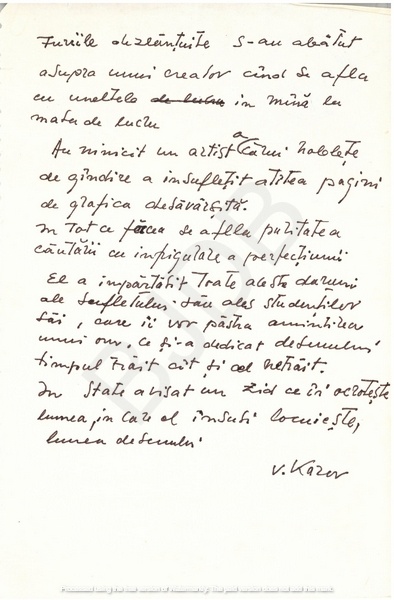 Furiile dezlănțuite s-au abătut
asupra unui creator când se afla
cu uneltele de lucru in mînă la
masa de lucru
Au nimicit un artist a cărui noblețe
de gîndire a insuflețit atîtea pagini
de grafica desăvârșită.
In tot ce făcea se aflla puritatea
căutării cu infrigurare a perfecțiunii
El a impărtășit toate aceste daruri
ale sufletului său ales studenților
săi, care îi vor păstra amintirea
unui om, ce și-a dedicat desenului
timpul trăit cît și cel netrăit.
In State a visat un zid ce isi ocrotește
lumea, in care el însuși locuiește,
lumea desenului
V. Kazar
BJDB